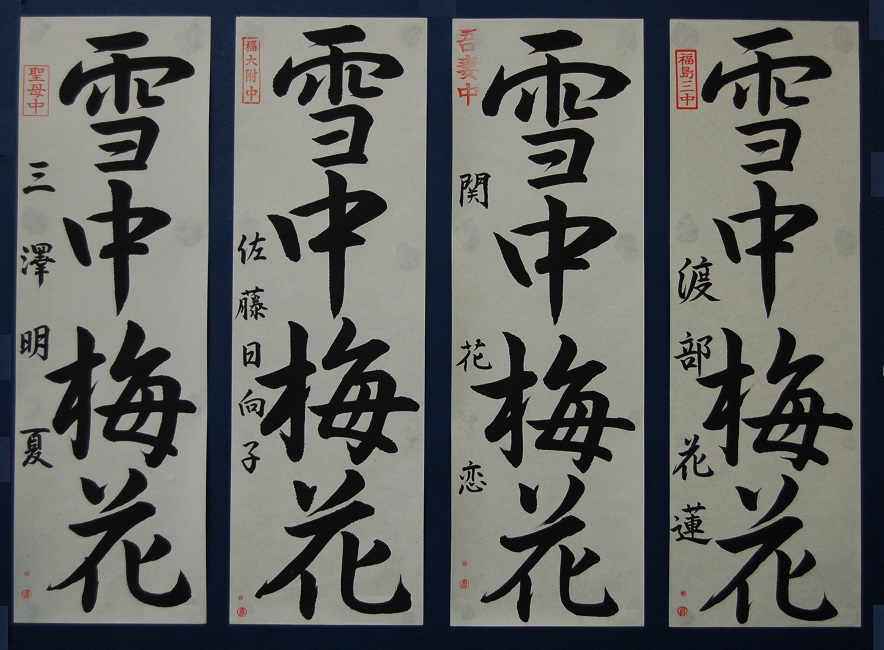 福島三中
雪中梅花
渡部花蓮
吾妻中
雪中梅花
関花恋
福大附中
雪中梅花
佐藤日向子
聖母中
雪中梅花
三澤明夏